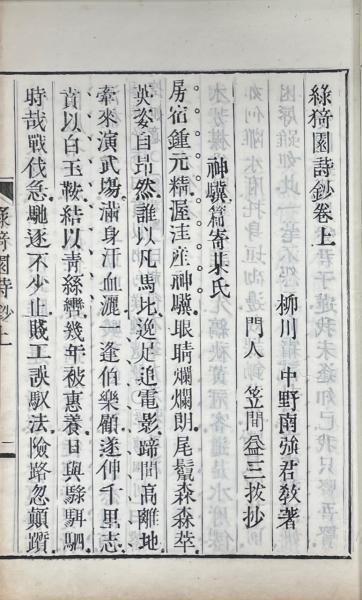 綠猗園詩鈔卷上
柳川 中野南強君教著
門人 笠間益三拔抄
神驥篇寄某氏
房宿鍾元精渥洼産神驥眼睛爛爛朗尾鬣森森萃
英姿自昂然誰以凡馬比逸足追電影蹄間高離地
牽來演武場滿身汗血灑一逢伯樂顧遂伸千里志
賁以白玉鞍結以青絲轡幾年被惠養日與騄駬駟
時哉戰伐急馳逐不少止賤工誤馭法險路忽顛躓
綠猗園詩鈔上